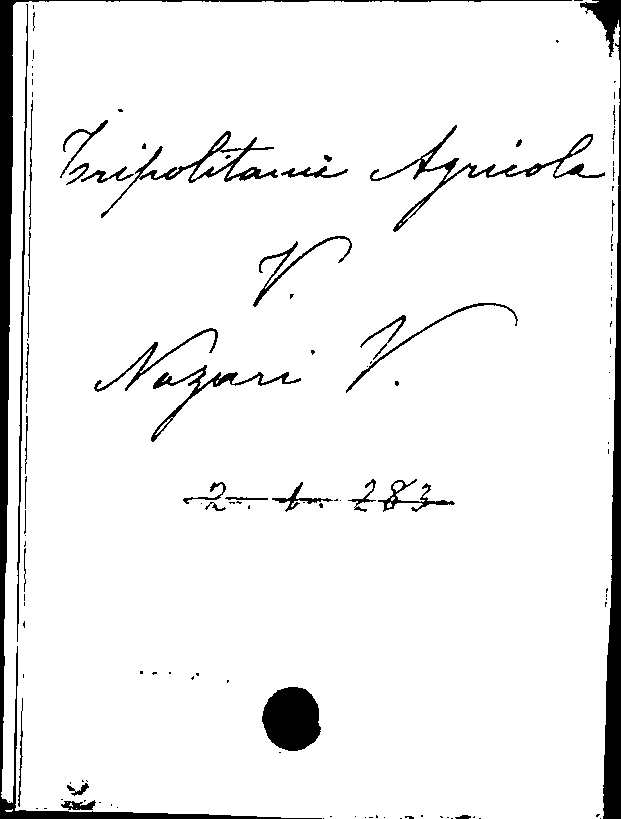 Tripolitania Agricola
V.
Nazari V.
2. b. 283